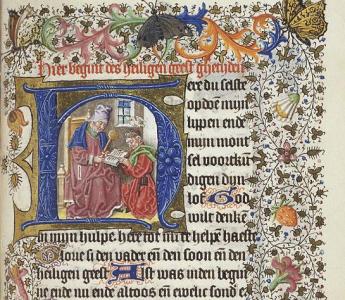 Hier begint des heiligen geest ghetijden
Here du selste
opdoen mijn
lippen ende
mijn mont
sel voortkun
digen dijn
lof God
wilt denken
in mijn hulpe here tot mi te helpen haeste
Glorie si den vader en̄ den soon en̄ den
heiligen geest Alst was inden begin
ne ende nu ende altoos en̄ ewelic